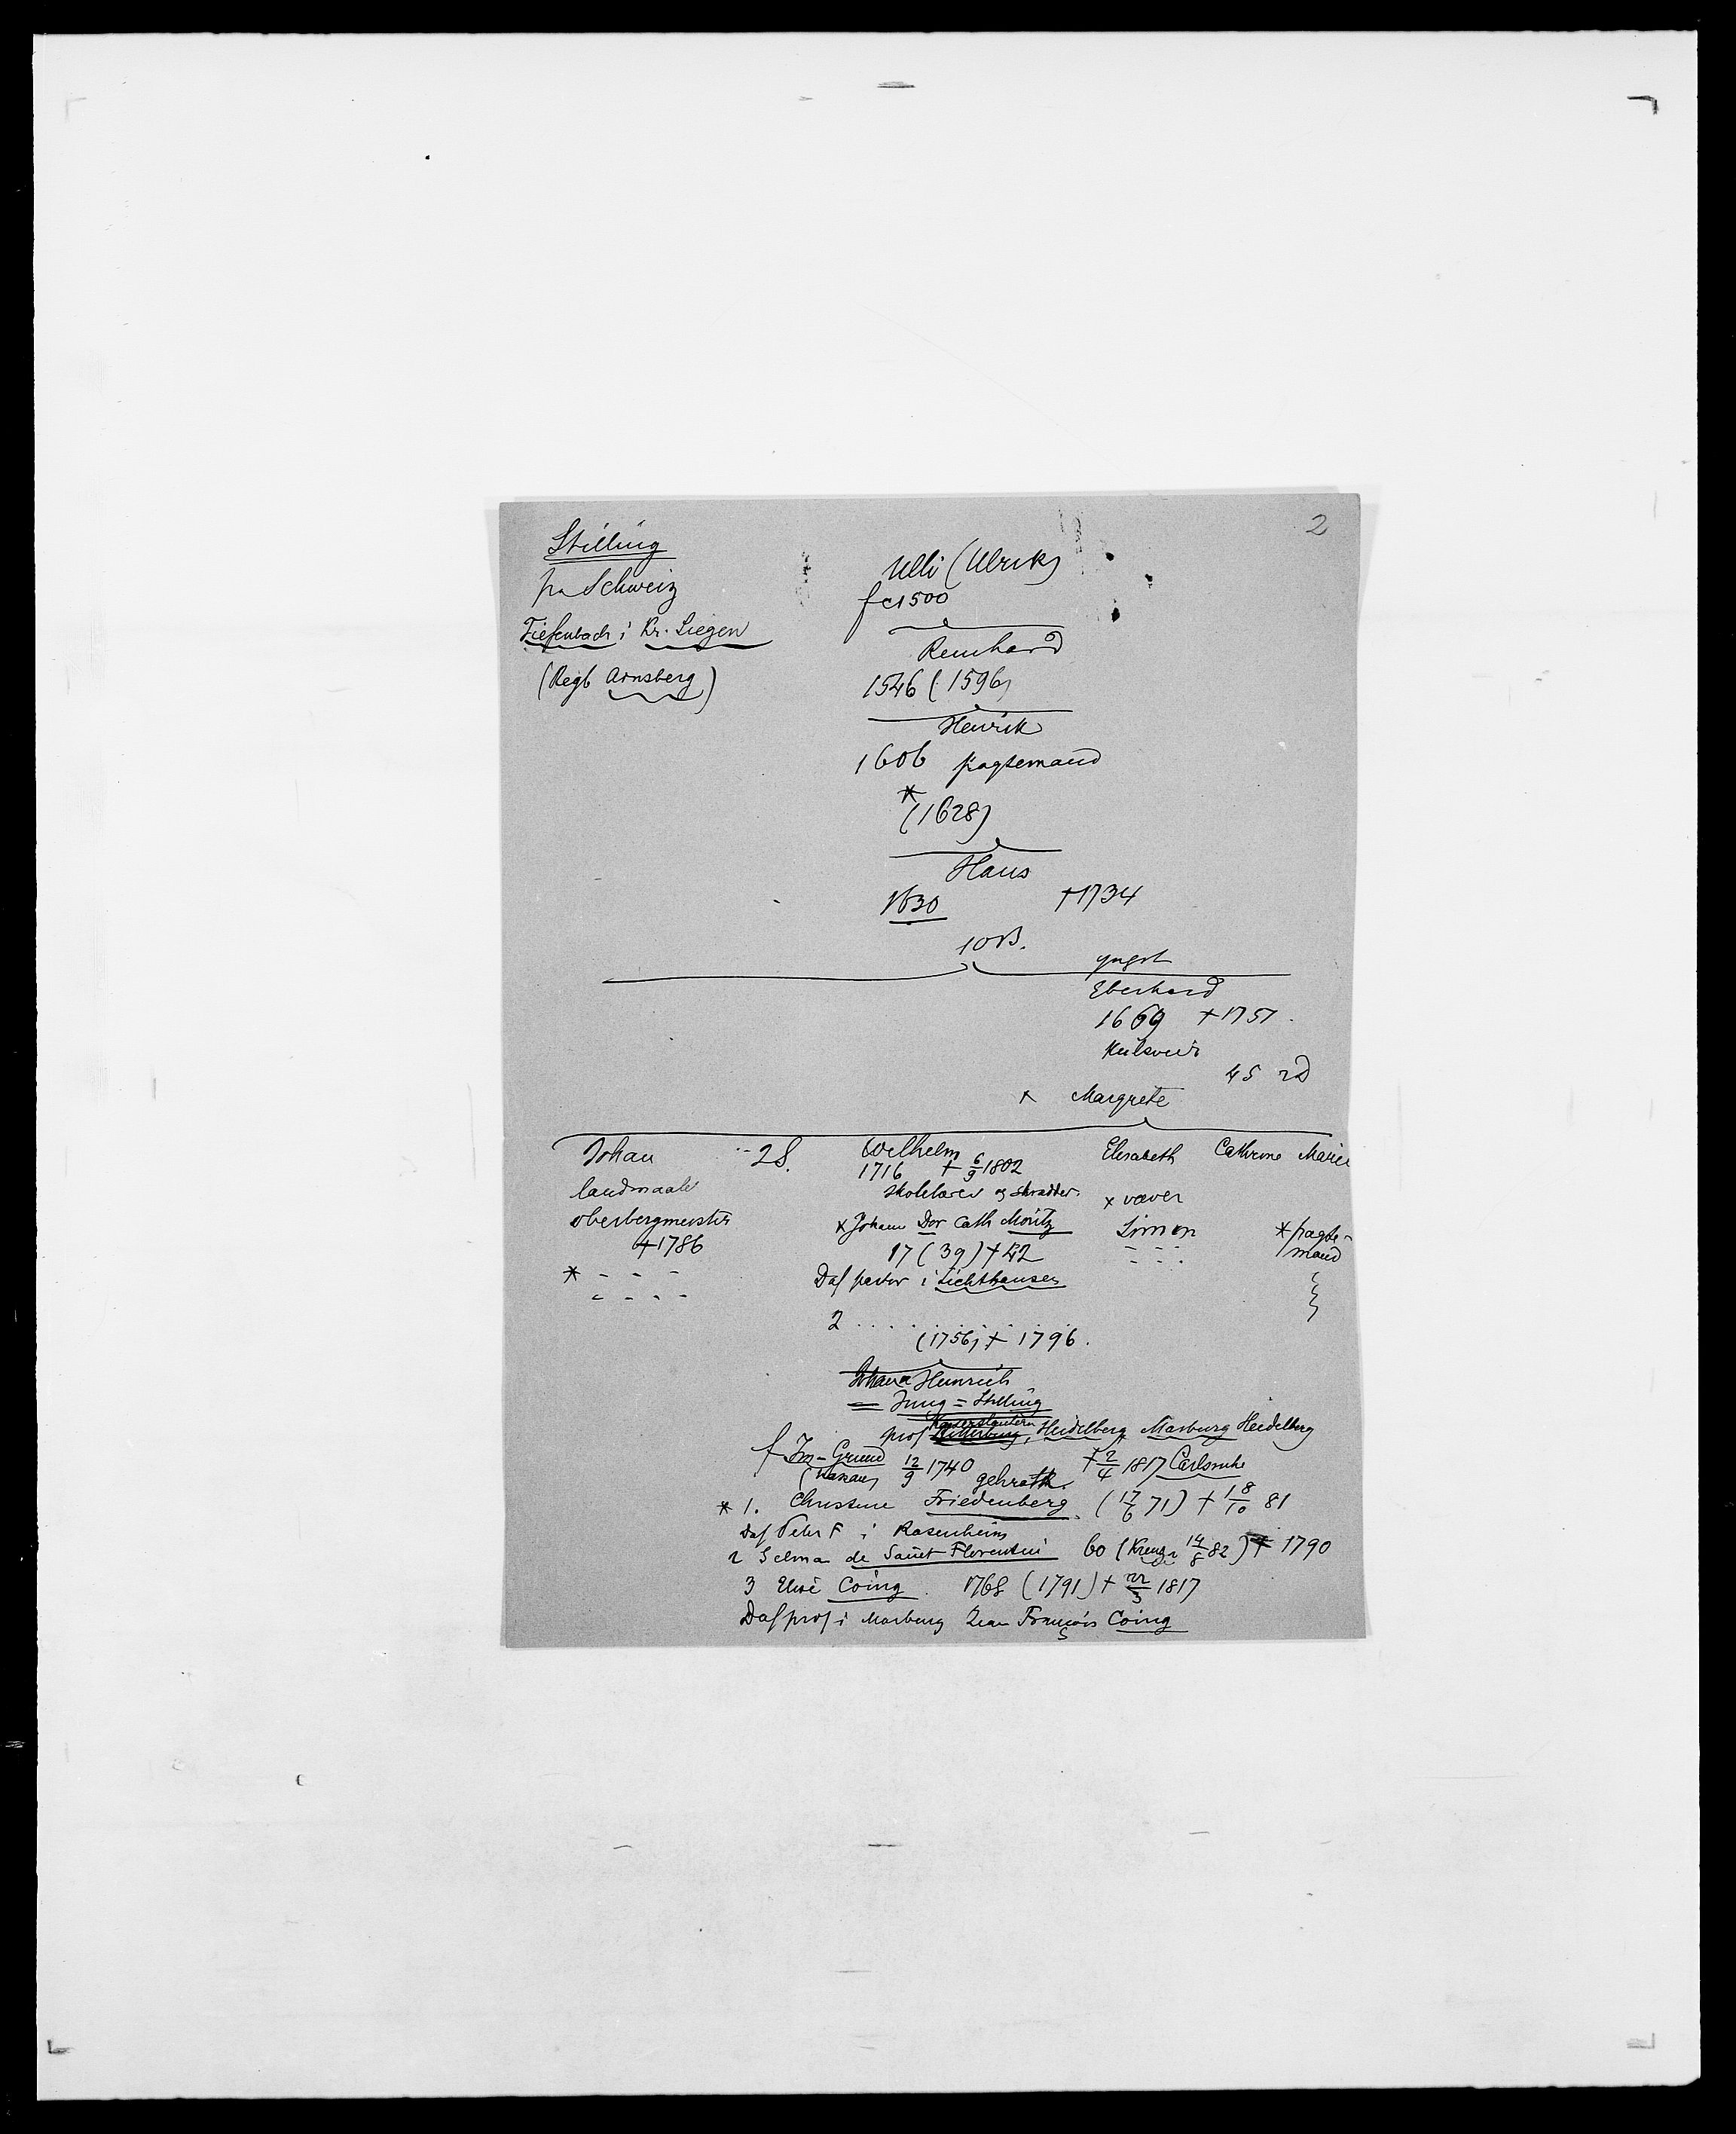 2
Stilling
fra Schweiz
Tiefenbach i Kr. Siegen
(Regb Arnsberg)
Ulli (Ulrik)
f c 1500
Reinhard
1546 (1596)
Henrik
1606 pagtemand
*
(1628)
Hans
1630 †1734
10 B.
yngst
Eberhard
1669 †1751.
Kulsvier
45 rd
× Margrete
Johan 2S. Wilhelm Elisabeth Cathrine Marie
1716 † 6/9 1802
landmaaler skolelærer og skrædder × væver
oberbergmester × Johanne Dor Cath Moritz Simon * pagte-
†1786 17 (39) † 42 - - - mand
* - - - Daf pastor i Lichthausen
- - - -
2 . . . . . . . .
(1756) † 1796.
Johann Heinrich
= Jung = Stilling
Kaiserslautern
prof Ritterburg, Heidelberg Marburg Heidelberg
f Im-Grund 12/9 1740 † 2/4 1817 Carlsruhe
(Nassau) gehrath.
* 1. Christine Friedenberg (17/6 71) † 18/10 81
Daf Peter F i Rosenheim
2 Selma de Saint Florentin 60 (Kreuzn 14/8 82) † 1790
3 Elise Coing 1768 (1791) † 22/3 1817
Daf prof i Marburg Jean François Coing